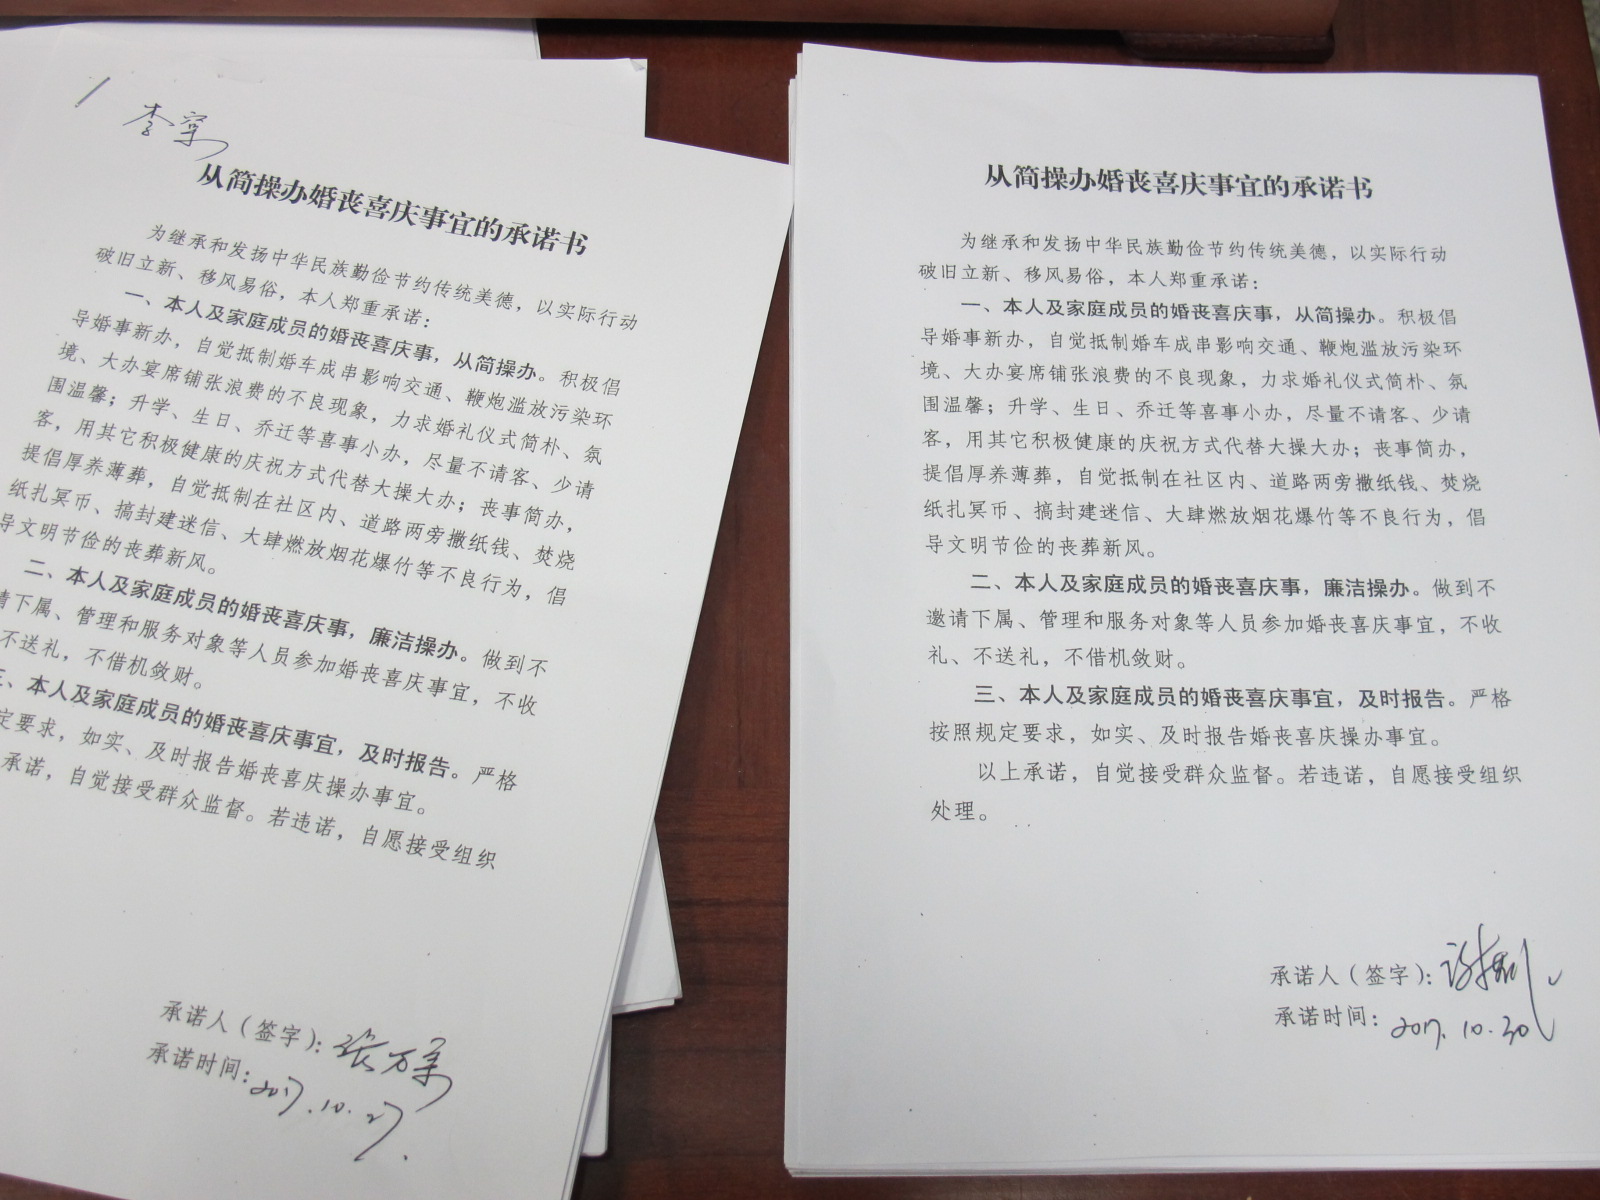 从简操办婚丧喜庆事宜的承诺书
为继承和发扬中华民族勤俭节约传统美德，以实际行动
破旧立新、移风易俗，本人郑重承诺：
一、本人及家庭成员的婚丧喜庆事，从简操办。积极倡
导婚事新办，自觉抵制婚车成串影响交通、鞭炮滥放污染环
境、大办宴席铺张浪费的不良现象，力求婚礼仪式简朴、氛
围温馨；升学、生日、乔迁等喜事小办，尽量不请客、少请
客，用其它积极健康的庆祝方式代替大操大办；丧事简办，
提倡厚养薄葬，自觉抵制在社区内、道路两旁撒纸钱、焚烧
纸扎冥币、搞封建迷信、大肆燃放烟花爆竹等不良行为，倡
导文明节俭的丧葬新风。
二、本人及家庭成员的婚丧喜庆事，廉洁操办。做到不
请下属、管理和服务对象等人员参加婚丧喜庆事宜，不收
不送礼，不借机敛财。
三、本人及家庭成员的婚丧喜庆事宜，及时报告。严格
定要求，如实、及时报告婚丧喜庆操办事宜。
承诺，自觉接受群众监督。若违诺，自愿接受组织
承诺人（签字）：张万
承诺时间：2017.10.27.
从简操办婚丧喜庆事宜的承诺书
为继承和发扬中华民族勤俭节约传统美德，以实际行动
破旧立新、移风易俗，本人郑重承诺：
一、本人及家庭成员的婚丧喜庆事，从简操办。积极倡
导婚事新办，自觉抵制婚车成串影响交通、鞭炮滥放污染环
境、大办宴席铺张浪费的不良现象，力求婚礼仪式简朴、氛
围温馨；升学、生日、乔迁等喜事小办，尽量不请客、少请
客，用其它积极健康的庆祝方式代替大操大办；丧事简办，
提倡厚养薄葬，自觉抵制在社区内、道路两旁撒纸钱、焚烧
纸扎冥币、搞封建迷信、大肆燃放烟花爆竹等不良行为，倡
导文明节俭的丧葬新风。
二、本人及家庭成员的婚丧喜庆事，廉洁操办。做到不
邀请下属、管理和服务对象等人员参加婚丧喜庆事宜，不收
礼、不送礼，不借机敛财。
三、本人及家庭成员的婚丧喜庆事宜，及时报告。严格
按照规定要求，如实、及时报告婚丧喜庆操办事宜。
以上承诺，自觉接受群众监督。若违诺，自愿接受组织
处理。
承诺人（签字）：
承诺时间：2017.10.30